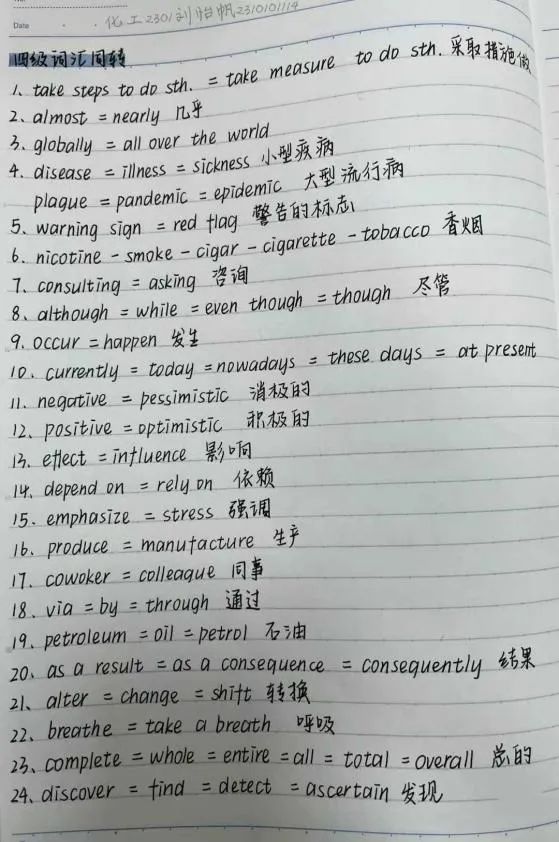 Date
化工2301刘怡帆2310101114
四级词汇同转
1. take steps to do sth. = take measure to do sth. 采取措施做
2. almost = nearly 几乎
3. globally = all over the world
4. disease = illness = sickness 小型疾病
plague = pandemic = epidemic 大型流行病
5. warning sign = red flag 警告的标志
6. nicotine - smoke - cigar - cigarette - tobacco 香烟
7. consulting = asking 咨询
8. although = while = even though = though 尽管
9. occur = happen 发生
10. currently = today = nowadays = these days = at present
11. negative = pessimistic 消极的
12. positive = optimistic 积极的
13. effect = influence 影响
14. depend on = rely on 依赖
15. emphasize = stress 强调
16. produce = manufacture 生产
17. cowoker = colleague 同事
18. via = by = through 通过
19. petroleum = oil = petrol 石油
20. as a result = as a consequence = consequently 结果
21. alter = change = shift 转换
22. breathe = take a breath 呼吸
23. complete = whole = entire = all = total = overall 总的
24. discover = find = detect = ascertain 发现